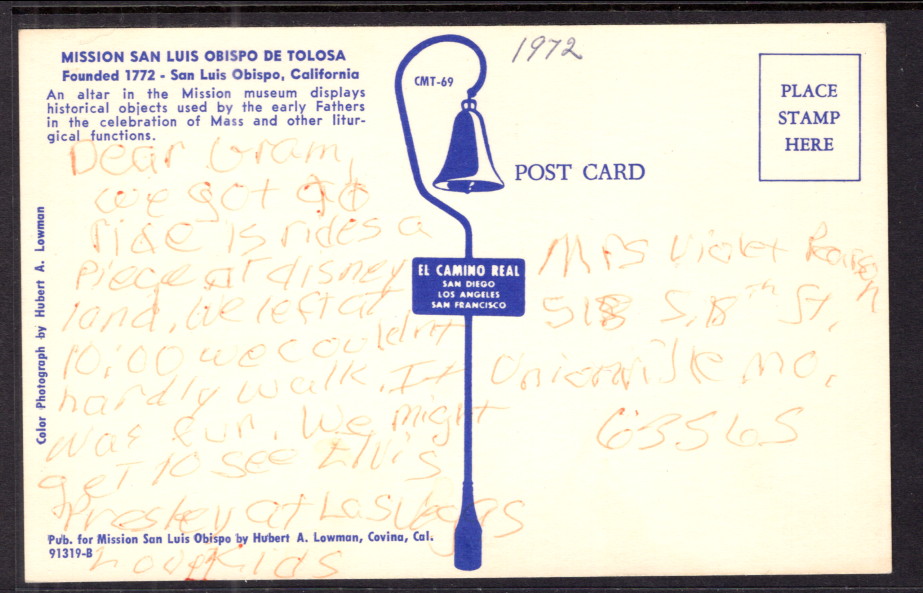 MISSION SAN LUIS OBISPO DE TOLOSA
Founded 1772 - San Luis Obispo, California
An altar in the Mission museum displays
historical objects used by the early Fathers
in the celebration of Mass and other litur-
gical functions.
1972
CMT-69
POST CARD
PLACE
STAMP
HERE
EL CAMINO REAL
SAN DIEGO
LOS ANGELES
SAN FRANCISCO
Color Photograph by Hubert A. Lowman
Dear Gram,
we got to
ride 15 rides a
piece at disney
land, we left at
10:00 we couldnt
hardly walk. It
was fun. We might
get to see Elvis
Presley at Las Vegas
Love Kids
Mrs Violet
518 S, 18th St,
Unionville mo,
63565
Pub. for Mission San Luis Obispo by Hubert A. Lowman, Covina, Cal.
91319-B